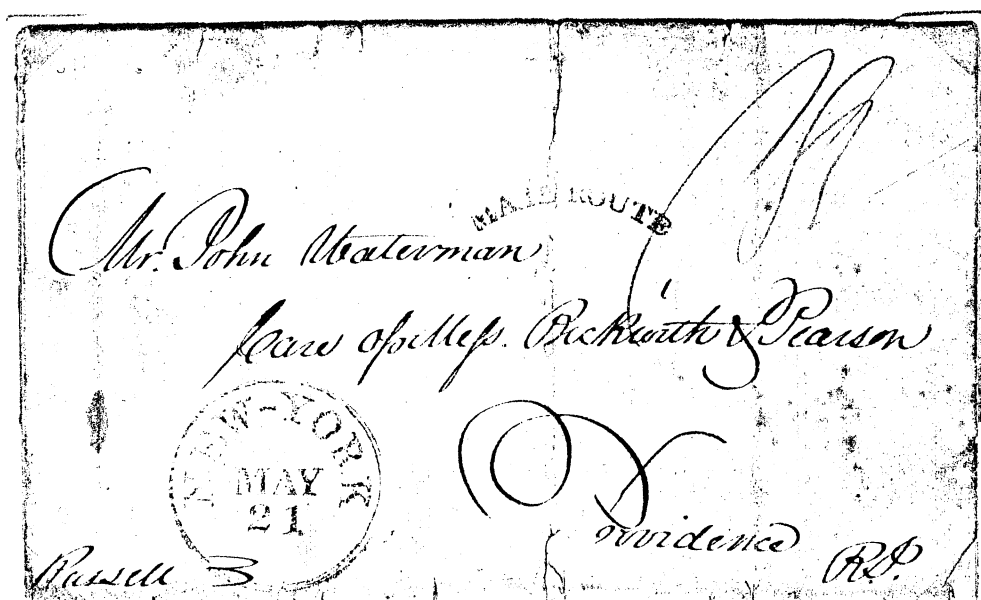 MAIL ROUTE
Mr. John Waterman
Care of Mess. Beckwith & Pearson
NEW-YORK
MAY
21
Providence
R.I.
Russell 3